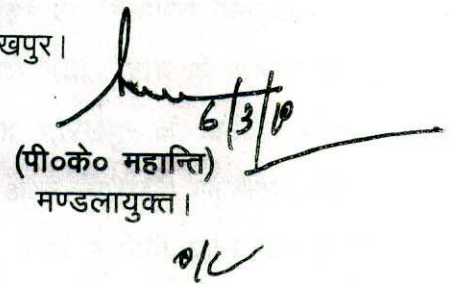 खपुर।
6/3/10
(पी०के० महान्ति)
मण्डलायुक्त।
o/c